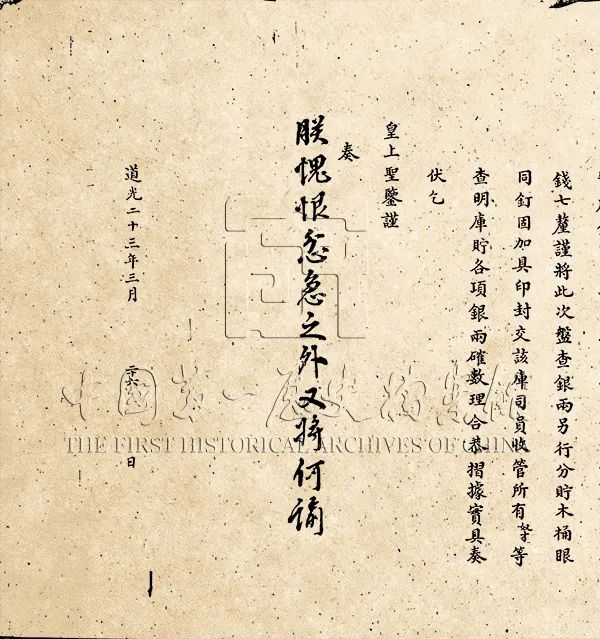 錢七釐謹將此次盤查銀兩另行分貯木桶眼
同釘固加具印封交該庫司員收管所有奴才等
查明庫貯各項銀兩確數理合恭摺據實具奏
伏乞
皇上聖鑒謹
奏
朕愧恨忿急之外又將何諭
道光二十三年三月 二十六 日
中國第一歷史檔案館
THE FIRST HISTORICAL ARCHIVES OF CHINA